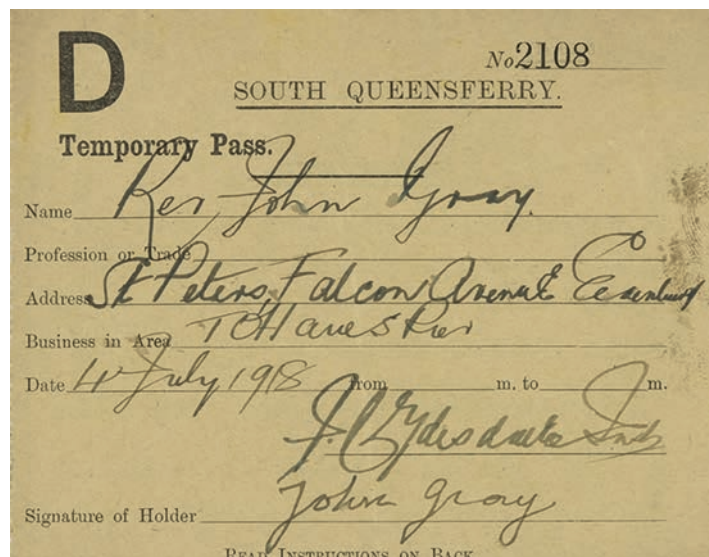 D
No 2108
SOUTH QUEENSFERRY.
Temporary Pass.
Name Rev John Gray.
Profession or Trade
Address St Peters, Falcon Avenue Edinburgh
Business in Area To Hawes Pier
Date 4 July 1918 from m. to m.
J. Clydesdale
Signature of Holder John Gray
READ INSTRUCTIONS ON BACK